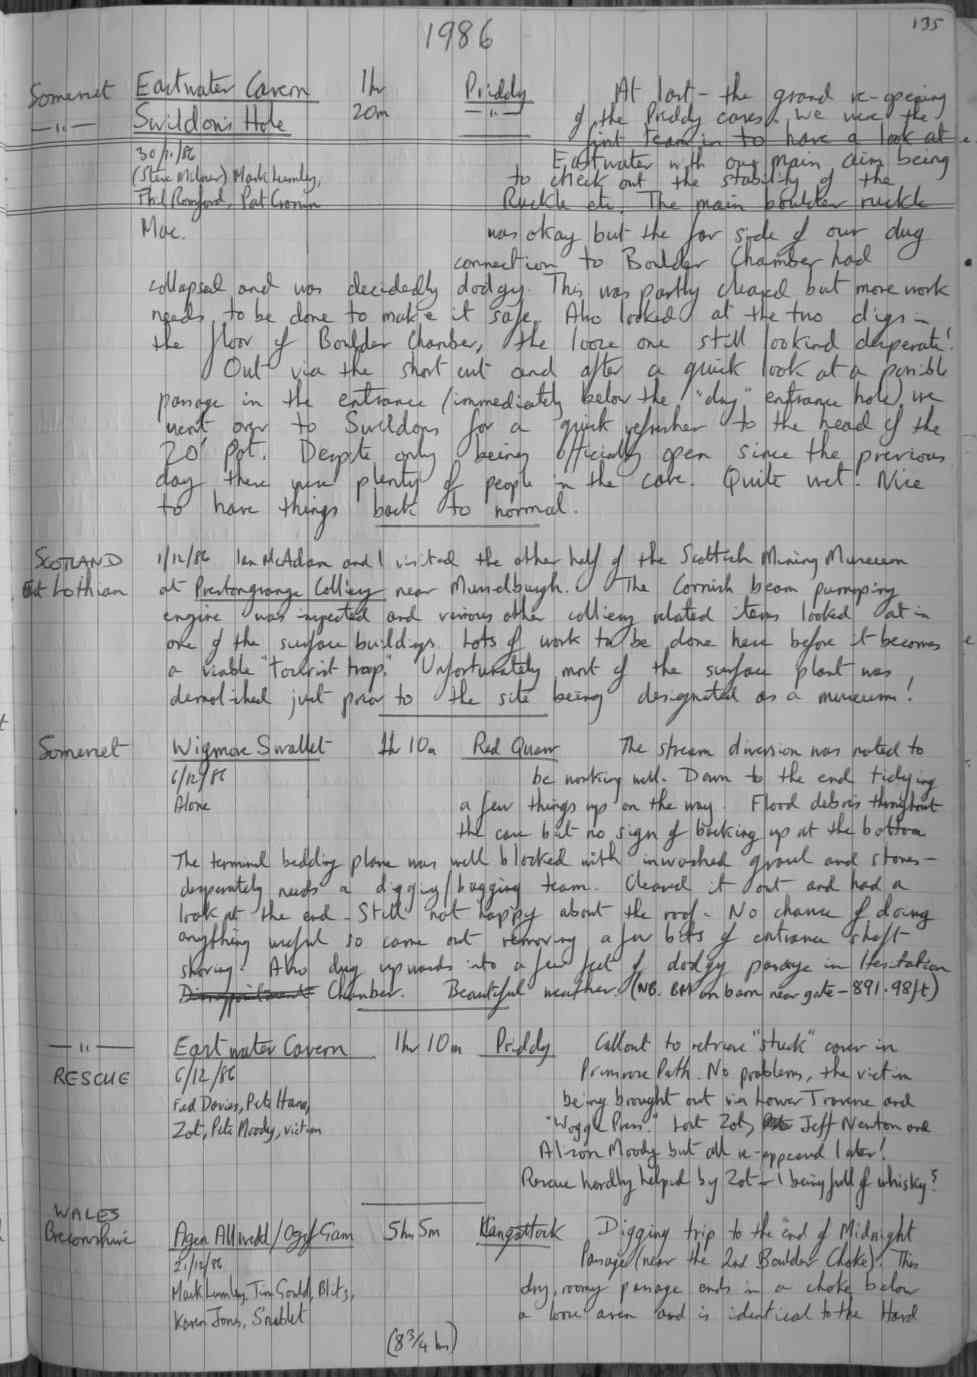 135
1986
Somerset Eastwater Cavern 1hr Priddy At last - the grand re-opening
—"— Swildon's Hole 20m —"— of the Priddy caves. We were the
30/11/86 first team in to have a look at
Eastwater with our main aim being
(Steve Milner) Mark Lumley, to check out the stability of the
Phil Romford, Pat Cronin Ruckle etc. The main boulder ruckle
Mac. was okay but the far side of our dug
connection to Boulder Chamber had
collapsed and was decidedly dodgy. This was partly cleared but more work
needs to be done to make it safe. Also looked at the two digs in
the floor of Boulder Chamber, the loose one still lookind desperate!
Out via the short cut and after a quick look at a possible
passage in the entrance (immediately below the "dry" entrance hole) we
went over to Swildons for a quick refresher to the head of the
20' Pot. Despite only being officially open since the previous
day there were plenty of people in the cave. Quite wet! Nice
to have things back to normal.
SCOTLAND 1/12/86 Ian McAdam and I visited the other half of the Scottish Mining Museum
East Lothian at Prestongrange Colliery near Musselburgh. The Cornish beam pumping
engine was inspected and various other colliery related items looked at in
one of the surface buildings. Lots of work to be done here before it becomes
a viable "tourist trap." Unfortunately most of the surface plant was
demolished just prior to the site being designated as a museum!
Somerset Wigmore Swallet 1hr 10m Red Quarr The stream diversion was noted to
6/12/86 be working well. Down to the end tidying
Alone a few things up on the way. Flood debris throughout
the cave but no sign of backing up at the bottom
The terminal bedding plane was well blocked with inwashed gravel and stones -
desperately needs a digging/bagging team. Cleared it out and had a
look at the end - Still not happy about the roof - No chance of doing
anything useful so came out removing a few bits of entrance shaft
shoring. Also dug upwards into a few feet of dodgy passage in Hesitation
Disappointment Chamber. Beautiful weather. (NB. BM on barn near gate - 891.98ft)
—"— Eastwater Cavern 1hr 10m Priddy Callout to retrieve "stuck" caver in
RESCUE 6/12/86 Primrose Path. No problems, the victim
Fred Davies, Pete Hann, being brought out via Lower Traverse and
Zot, Pete Moody, victim "Woggle Press." Lost Zot, Jeff Newton and
Alison Moody but all re-appeared later!
Rescue hardly helped by Zot + I being full of whisky!
WALES
Breconshire Agen Allwedd/Ogof Gam 5hr 5m Llangattock Digging trip to the end of Midnight
21/12/86 Passage (near the 2nd Boulder Choke). This
Mark Lumley, Tim Gould, Blitz, dry, roomy passage ends in a choke below
Karen Jones, Snablet a loose aven and is identical to the Hard
(8 3/4 hrs)